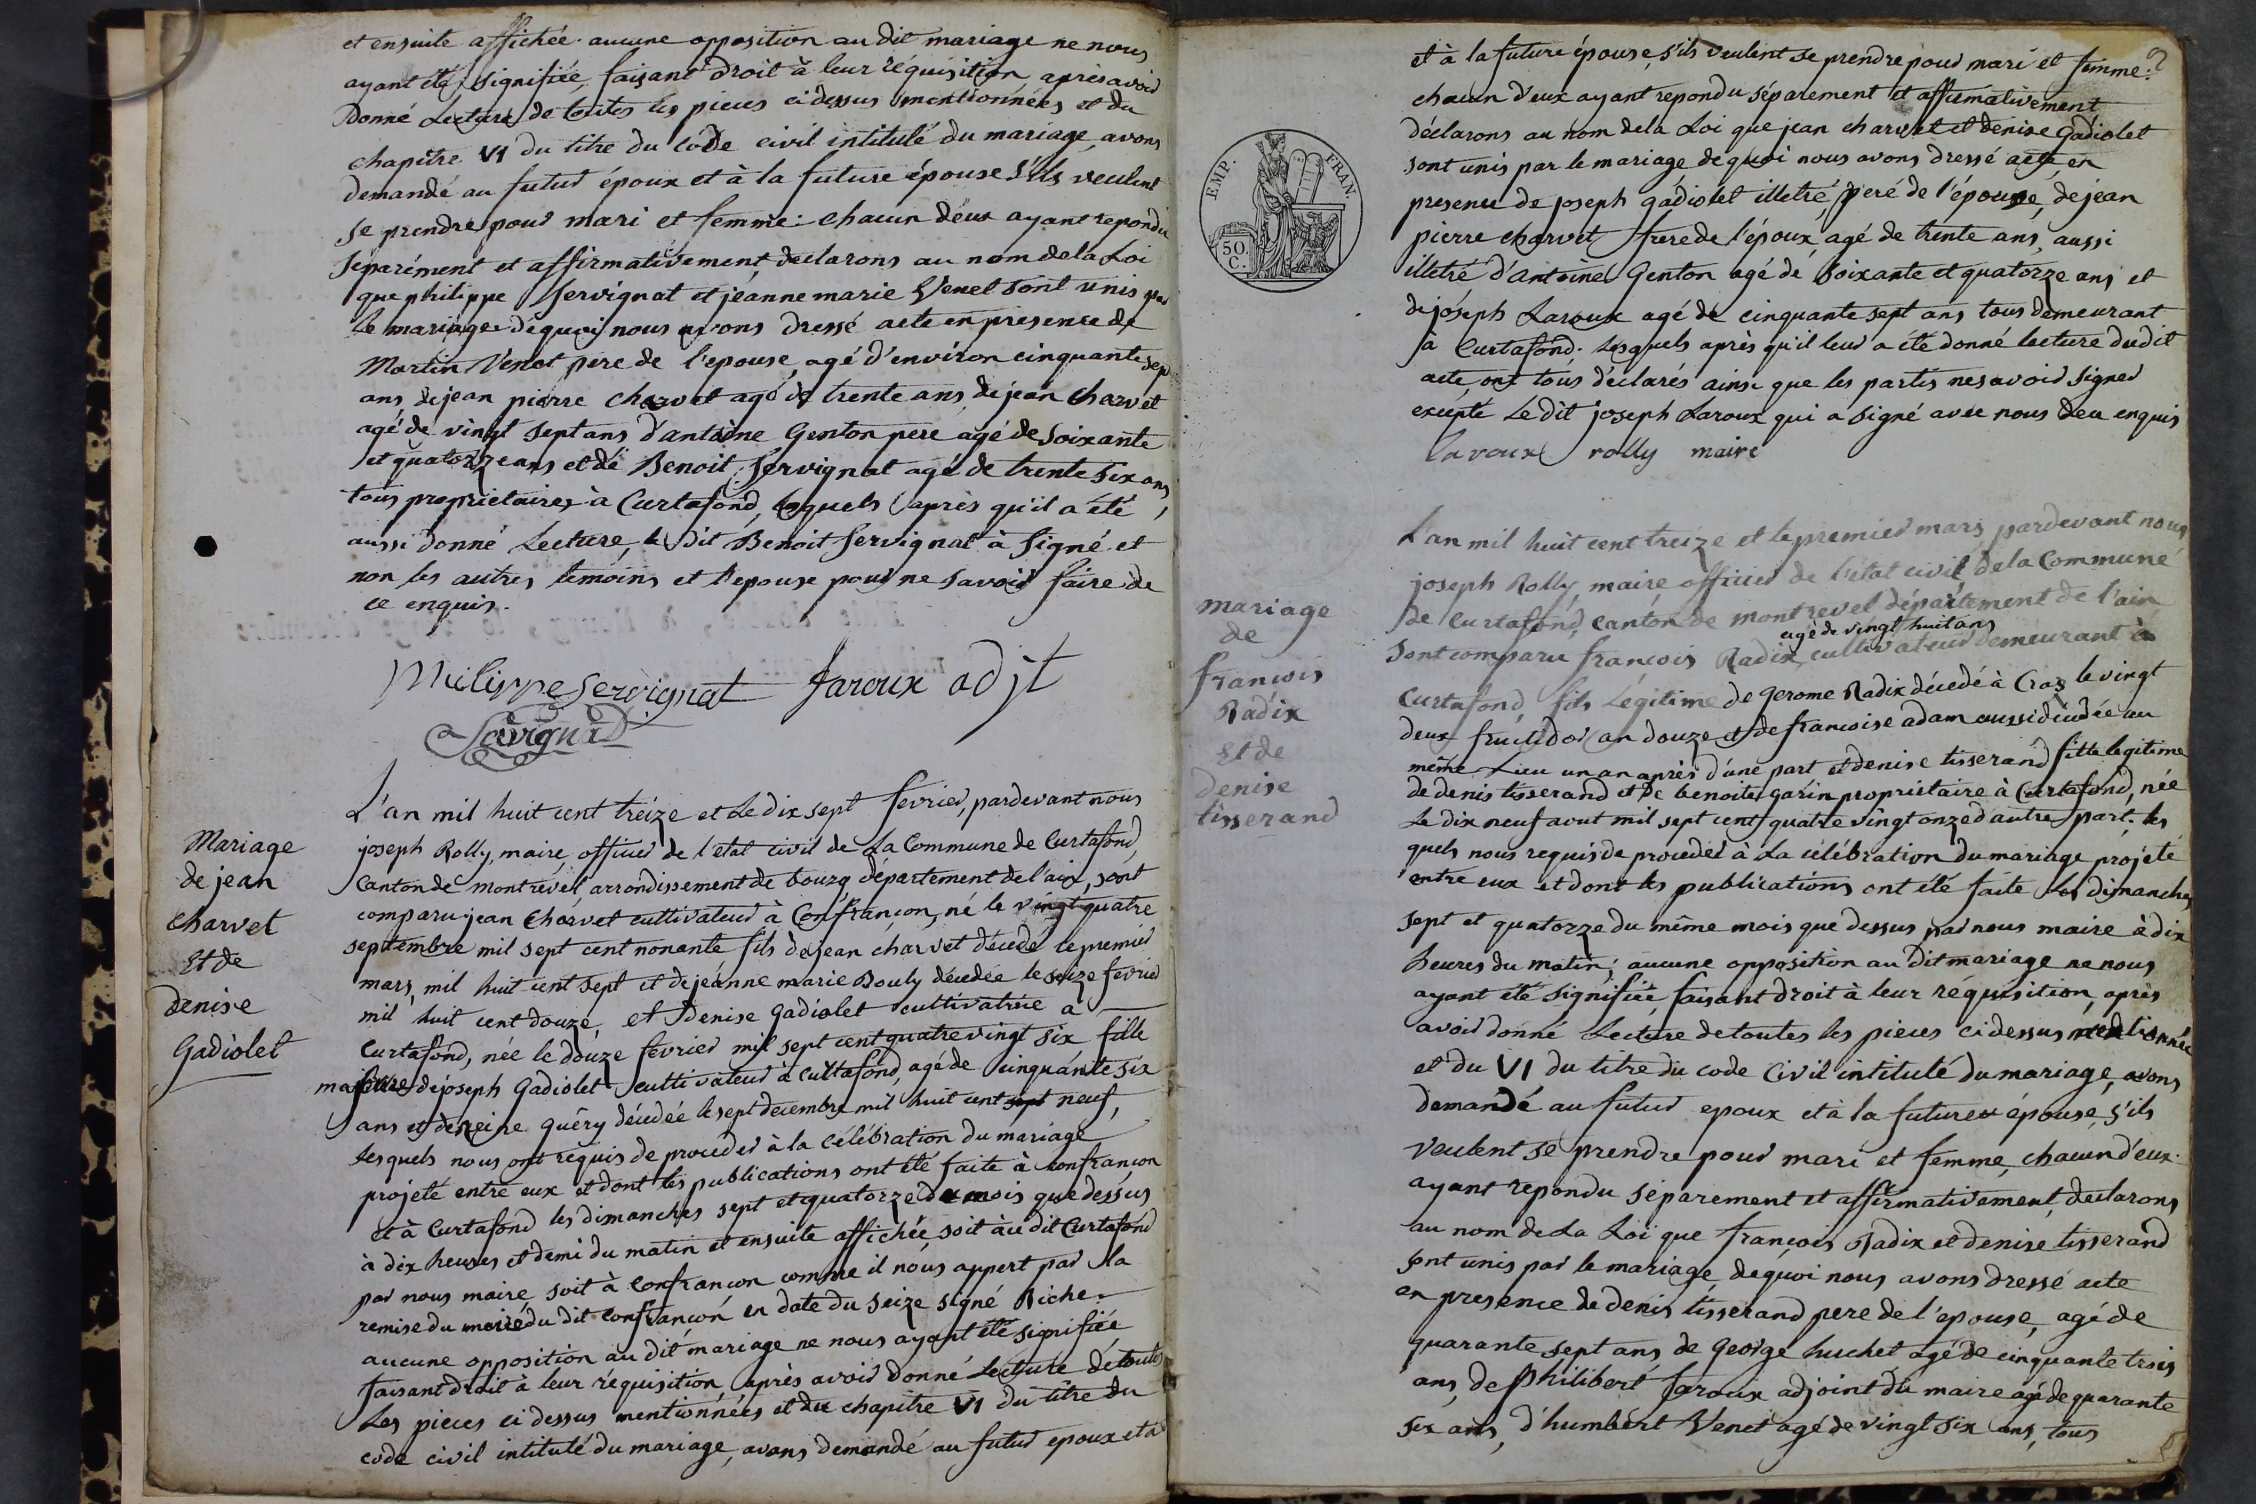 et ensuite affichée. aucune opposition au dit mariage ne nous
ayant été signifiée, faisant droit à leur réquisition après avoir
Donné Lecture de toutes les pieces cidessus mentionnées et du
chapitre VI du titre du code civil intitulé du mariage, avons
demandé au futur époux et à la future épouse S'ils veulent
se prendre pour mari et femme: chacun d'eux ayant repondu
Séparément et affirmativement, declarons au nom de la Loi
que philippe Servignat et jeanne marie Venet sont unis par
le mariage. dequoi nous avons dressé acte en presence de
Martin Venet pere de l'epouse, agé d'environ cinquante sep
ans de jean pierre charvet agé de trente ans de jean Charvet
agé de vingt sept ans d'antoine Genton pere agé de soixante
et quatorze ans et de Benoit Servignat agé de trente six ans,
tous proprietaires à Curtafond, lesquels après qu'il a été
aussi donné Lecture, le dit Benoit Servignat à signé et
non les autres temoins et l'epouse pour ne savoir faire de
ce enquis.
Philippe Servignat Faroux adjt
Servignat
Mariage
de jean
charvet
Et de
denise
Gadiolet
L'an mil huit cent treize et Le dix sept fevrier, pardevant nous
joseph Rolly, maire, officier de l'etat civil de La Commune de Curtafond,
Canton de montrevel arrondissement de bourg département de l'ain, sont
comparu jean Charvet cultivateur à Confrançon, né le vingt quatre
septembre mil sept cent nonante fils de jean charvet décédé le premier
mars, mil huit cent sept et de jeanne marie Bouly décedée le seize fevrier
mil huit cent douze, et Denise Gadiolet cultivatrice a
Curtafond, née le douze fevrier mil sept cent quatre vingt six fille
majeure de joseph Gadiolet cultivateur à Curtafond, agé de cinquante six
ans et de reine Guéry décedée le sept decembre mil huit cent sept neuf,
Lesquels nous ont requis de proceder à la célébration du mariage
projeté entre eux et dont les publications ont été faite à confrançon
et à Curtafond les dimanches sept et quatorze du mois que dessus
à dix heures et demi du matin et ensuite affichée, soit au dit Curtafond
par nous maire soit à confrançon comme il nous appert par la
remise du maire du dit confrançon en date du seize signé Riche.
aucune opposition au dit mariage ne nous ayant été signifiée
faisant droit à leur réquisition après avoir donné Lecture de toutes
Les pieces ci dessus mentionnées et du chapitre VI du titre du
code civil intitulé du mariage, avons demandé au futur epoux et a
EMP. FRAN.
50
C.
et à la future épouse, s'ils veulent se prendre pour mari et femme:
chacun d'eux ayant repondu séparement et affirmativement
déclarons au nom de la Loi que jean charvet et denise Gadiolet
sont unis par le mariage dequoi nous avons dressé acte en
presence de joseph gadiolet illetré, peré de l'épouse, de jean
pierre charvet frere de l'époux, agé de trente ans, aussi
illetré d'antoine Genton agé de soixante et quatorze ans et
de joseph Laroux agé de cinquante sept ans tous demeurant
à Curtafond; lesquels après qu'il leur a été donné lecture dudit
acte, ont tous déclarés ainsi que les partis ne savoir signer
excepté Le dit joseph Laroux qui a signé avec nous de ce enquis
laroux rolly maire
mariage
de
françois
Radix
Et de
Denise
tisserand
L'an mil huit cent treize et le premier mars pardevant nous
joseph Rolly, maire officier de l'état civil de la Commune
de Curtafond, canton de montrevel département de l'ain
agé de vingt huit ans
sont comparu françois Radix, cultivateur demeurant à
Curtafond, fils Légitime de gerome Radix décedé à Cras le vingt
deux fructidor an douze et de françoise adam aussi décedée au
même Lieu un an après d'une part et denise tisserand fille legitime
de denis tisserand et de benoite garin propriétaire à Curtafond, née
Le dix neuf aout mil sept cent quatre vingt onze d'autre part. les
quels nous requis de proceder à La célébration du mariage projeté
entre eux et dont les publications ont été faite les dimanches
sept et quatorze du même mois que dessus par nous maire à dix
heures du matin; aucune opposition au dit mariage ne nous
ayant été signifiée, faisant droit à leur réquisition, après
avoir donné Lecture de toutes les pieces ci dessus mentionnée
et du VI du titre du code Civil intitulé du mariage, avons
demandé au futur epoux et à la future épouse, s'ils
veulent se prendre pour mari et femme, chacun d'eux
ayant repondu séparement et affirmativement, declarons
au nom de La Loi que françois Radix et denise tisserand
sont unis par le mariage, dequoi nous avons dressé acte
en presence de denis tisserand pere de l'epouse, agé de
quarante sept ans de George huchet agé de cinquante trois
ans, de Philibert faroux adjoint du maire agé de quarante
six ans, d'humbert Venet agé de vingt six ans, tous